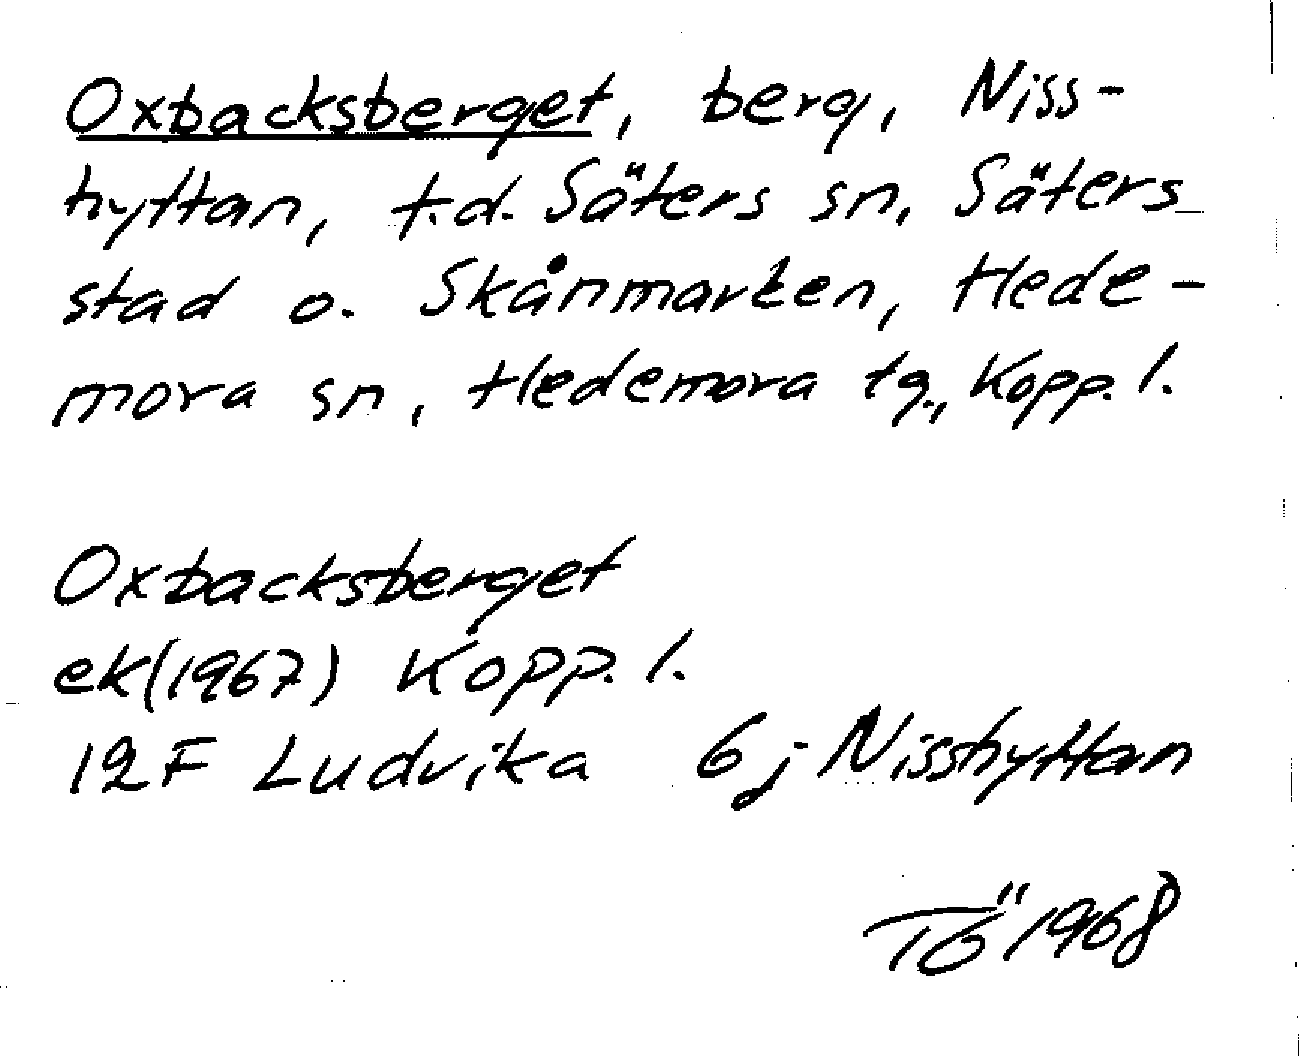 Oxbacksberget, berg, Niss-
hyttan, t.d. Säters sn, Säters
stad o. Skånmarken, Hede-
mora sn, Hedemora tg., Kopp. l.
Oxbacksberget
ek(1967) Kopp. l.
12F Ludvika 6j Nisshyttan
TÖ 1968